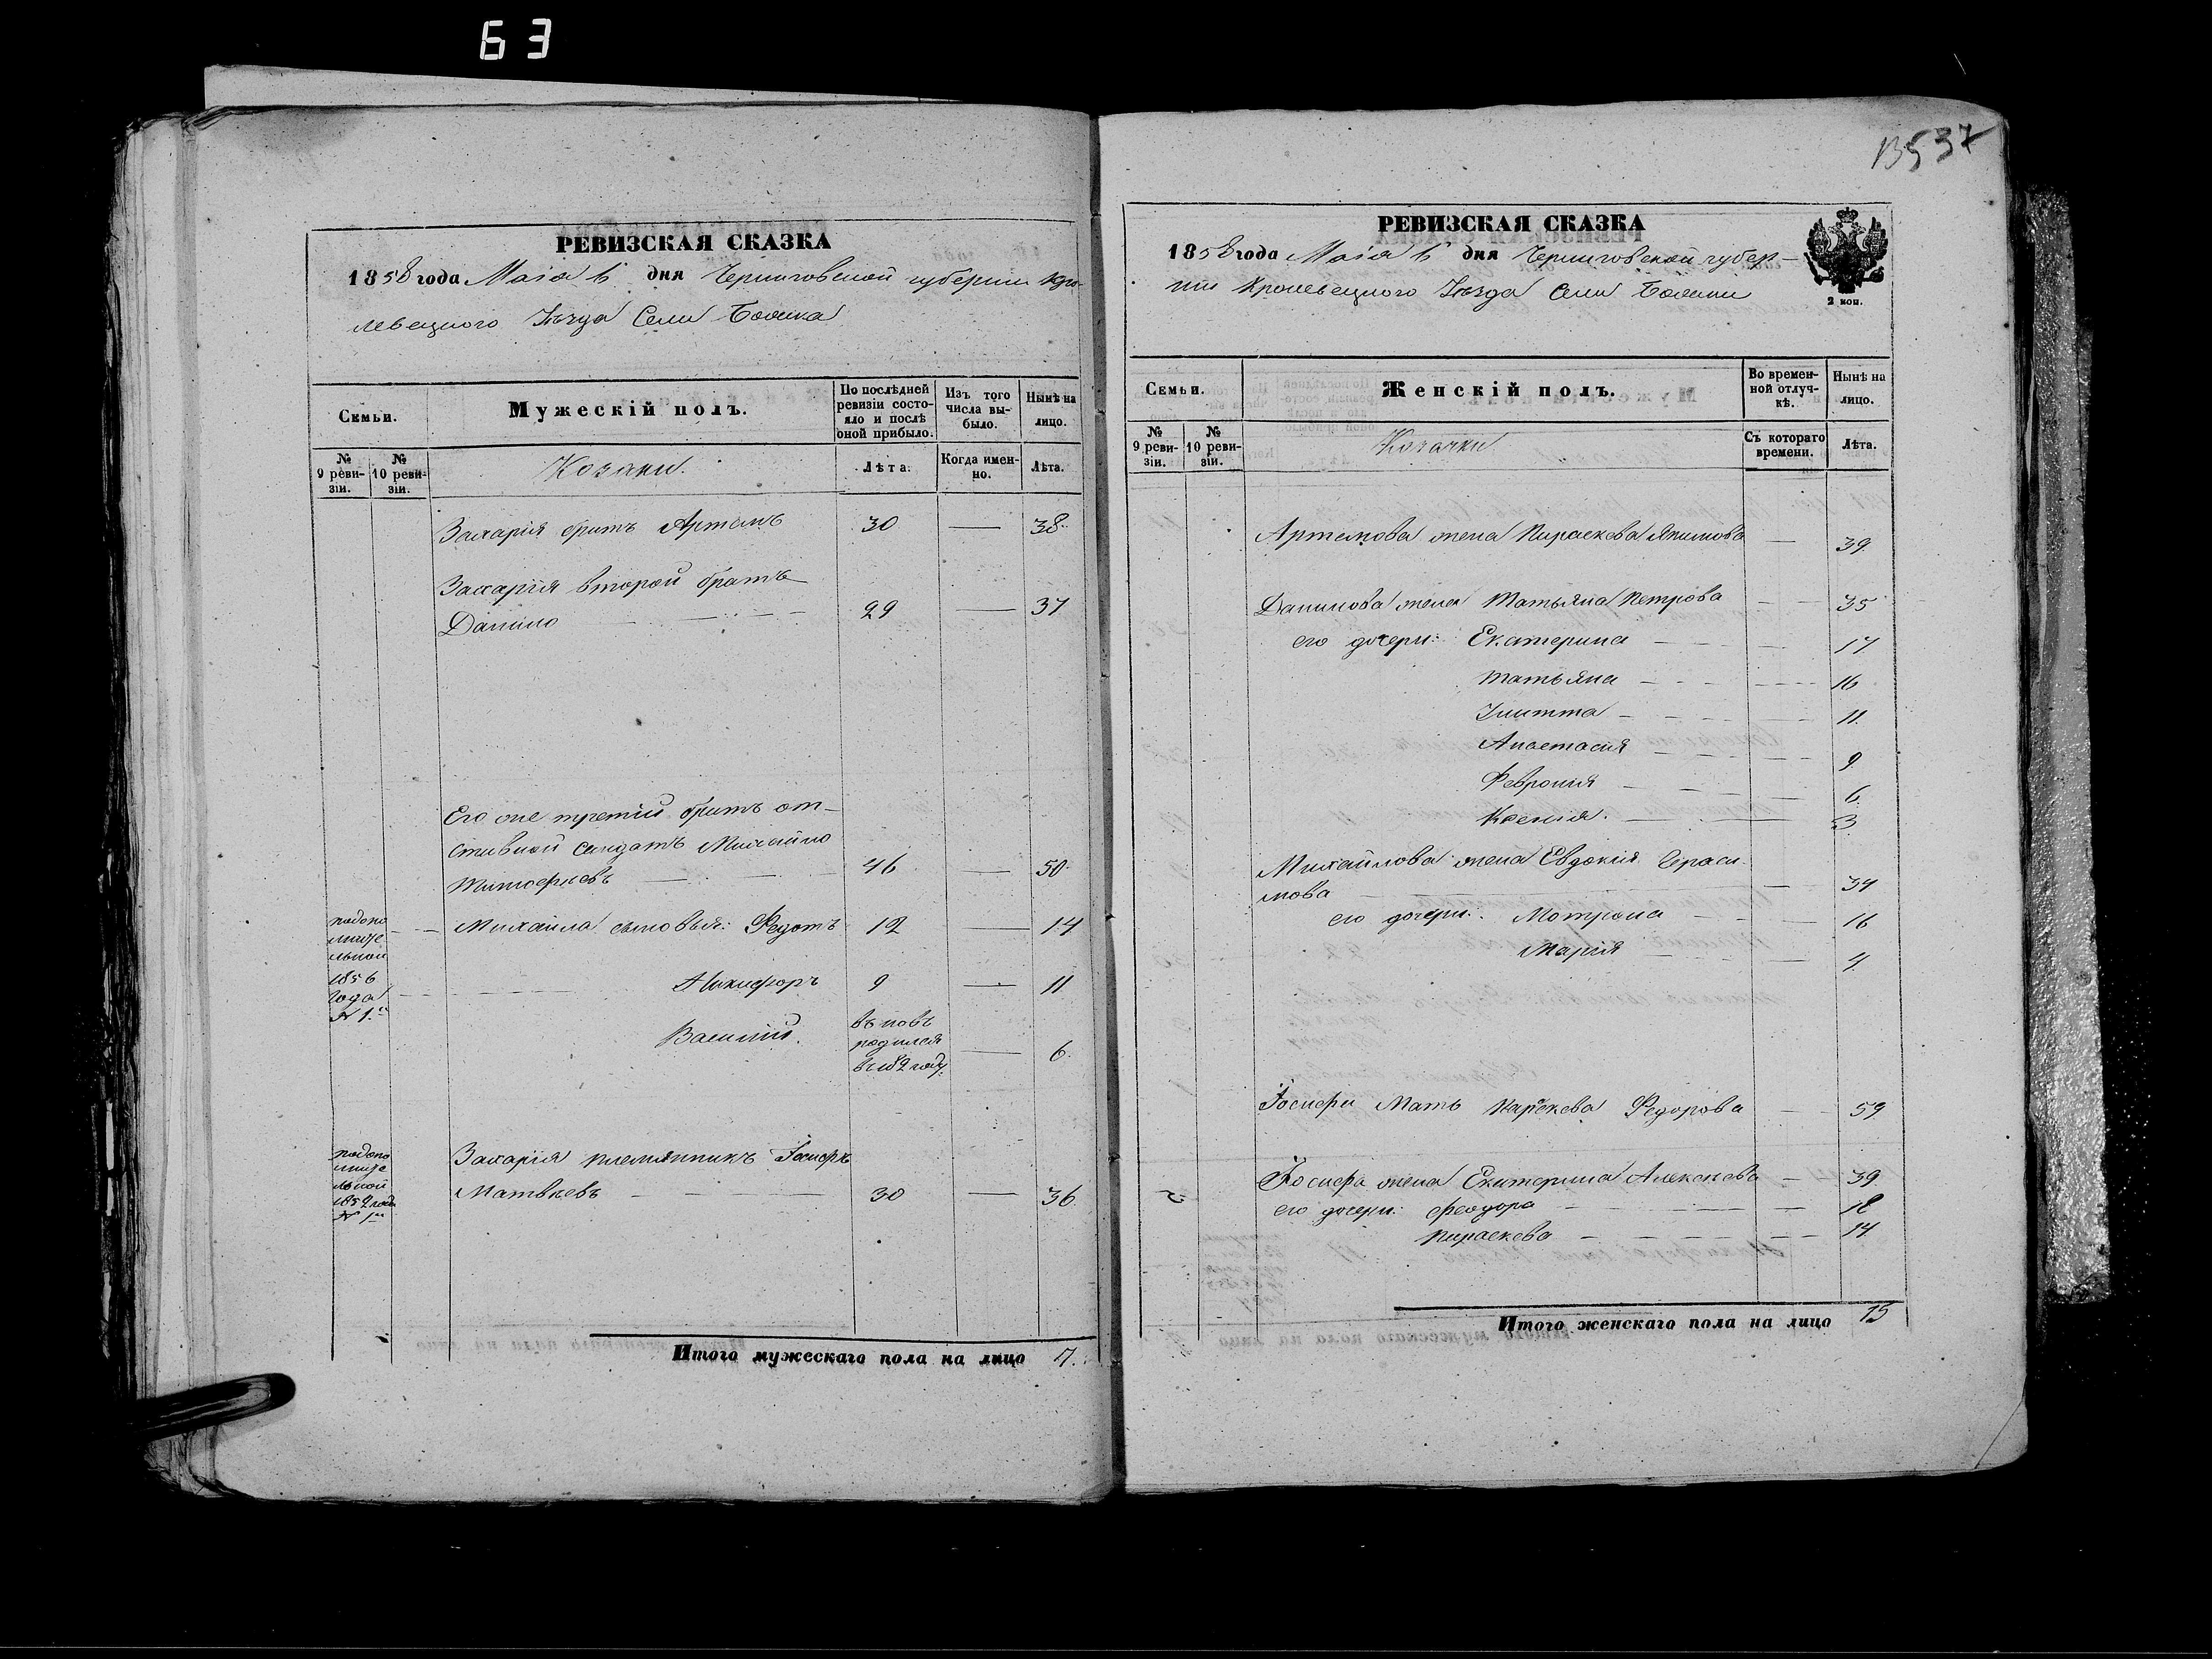 63
РЕВИЗСКАЯ СКАЗКА
1858 года Маія 6 дня Черниговской губерніи Кро-
левецкого Уѣзда Села
Семьи.
Мужескій полъ.
По послѣдней ревизіи состо-
яло и послѣ оной прибыло.
Изъ того числа вы-
было.
Нынѣ на лицо.
№ 9 реви-
зіи.
№ 10 реви-
зіи.
Козаки.
Лѣта.
Когда имен-
но.
Лѣта.
Захарія братъ Артемъ 30 — 38.
Захарія второй братъ
Данило — — — 29 — 37
Его же третій братъ от-
ставной солдатъ Михайло
46 — 50.
подопо
лните
льной
1856
года
№ 1.й
Михайла сыновья: Федотъ 12 — 14
Никифоръ 9 — 11
Василій. вновь
родился
в 1852 году. — 6.
подопо
лните
льной
1852 года
№ 1й
Захарія племянникъ Іосифъ
Матвѣевъ — — — 30 — 36.
Итого мужескаго пола на лицо 7.
13537
РЕВИЗСКАЯ СКАЗКА
1858 года Маія 6 дня Черниговской губер-
ніи Кролевецкого Уѣзда Села
2 коп.
Семьи.
Женскій полъ.
Во времен-
ной отлуч-
кѣ.
Нынѣ на лицо.
№ 9 реви-
зіи.
№ 10 реви-
зіи.
Козачки
Съ котораго времени.
Лѣта.
Артемова жена Параскева Якимова — 39.
Данилова жена Татьяна Петрова — 35
его дочери: Екатерина — 17
Татьяна — 16
11.
Анастасія — 9
Февронія — 6.
Ксенія. — 3
Михайлова жена Евдокія Гераси-
мова — 34
его дочери: Мотрона — 16
Марія — 4.
Іосифа Мать Параскева Федорова — 59
Іосифа жена Екатерина Алексеева — 39.
его дочери: Феодора — 18
Параскева — 14.
Итого женскаго пола на лицо 15